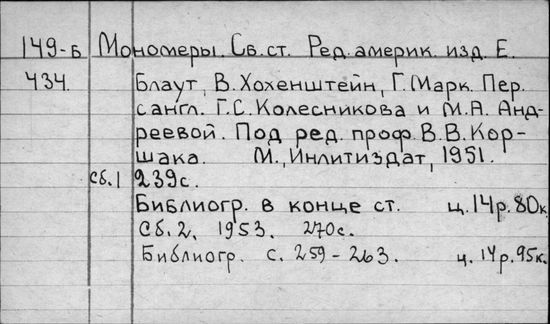 149-Б Мономеры. Сб. ст. Ред. америк. изд. Е.
434. Блаут, В. Хохенштейн, Г. Марк. Пер.
с англ. Г.С. Колесникова и М.А. Анд-
реевой. Под ред. проф. В.В. Кор-
шака. М., Инлитиздат, 1951.
Сб. 1 239с.
Библиогр. в конце ст. ц. 14р. 80к
Сб. 2. 1953. 270с.
Библиогр. с. 259-263. ц. 14р. 95к.